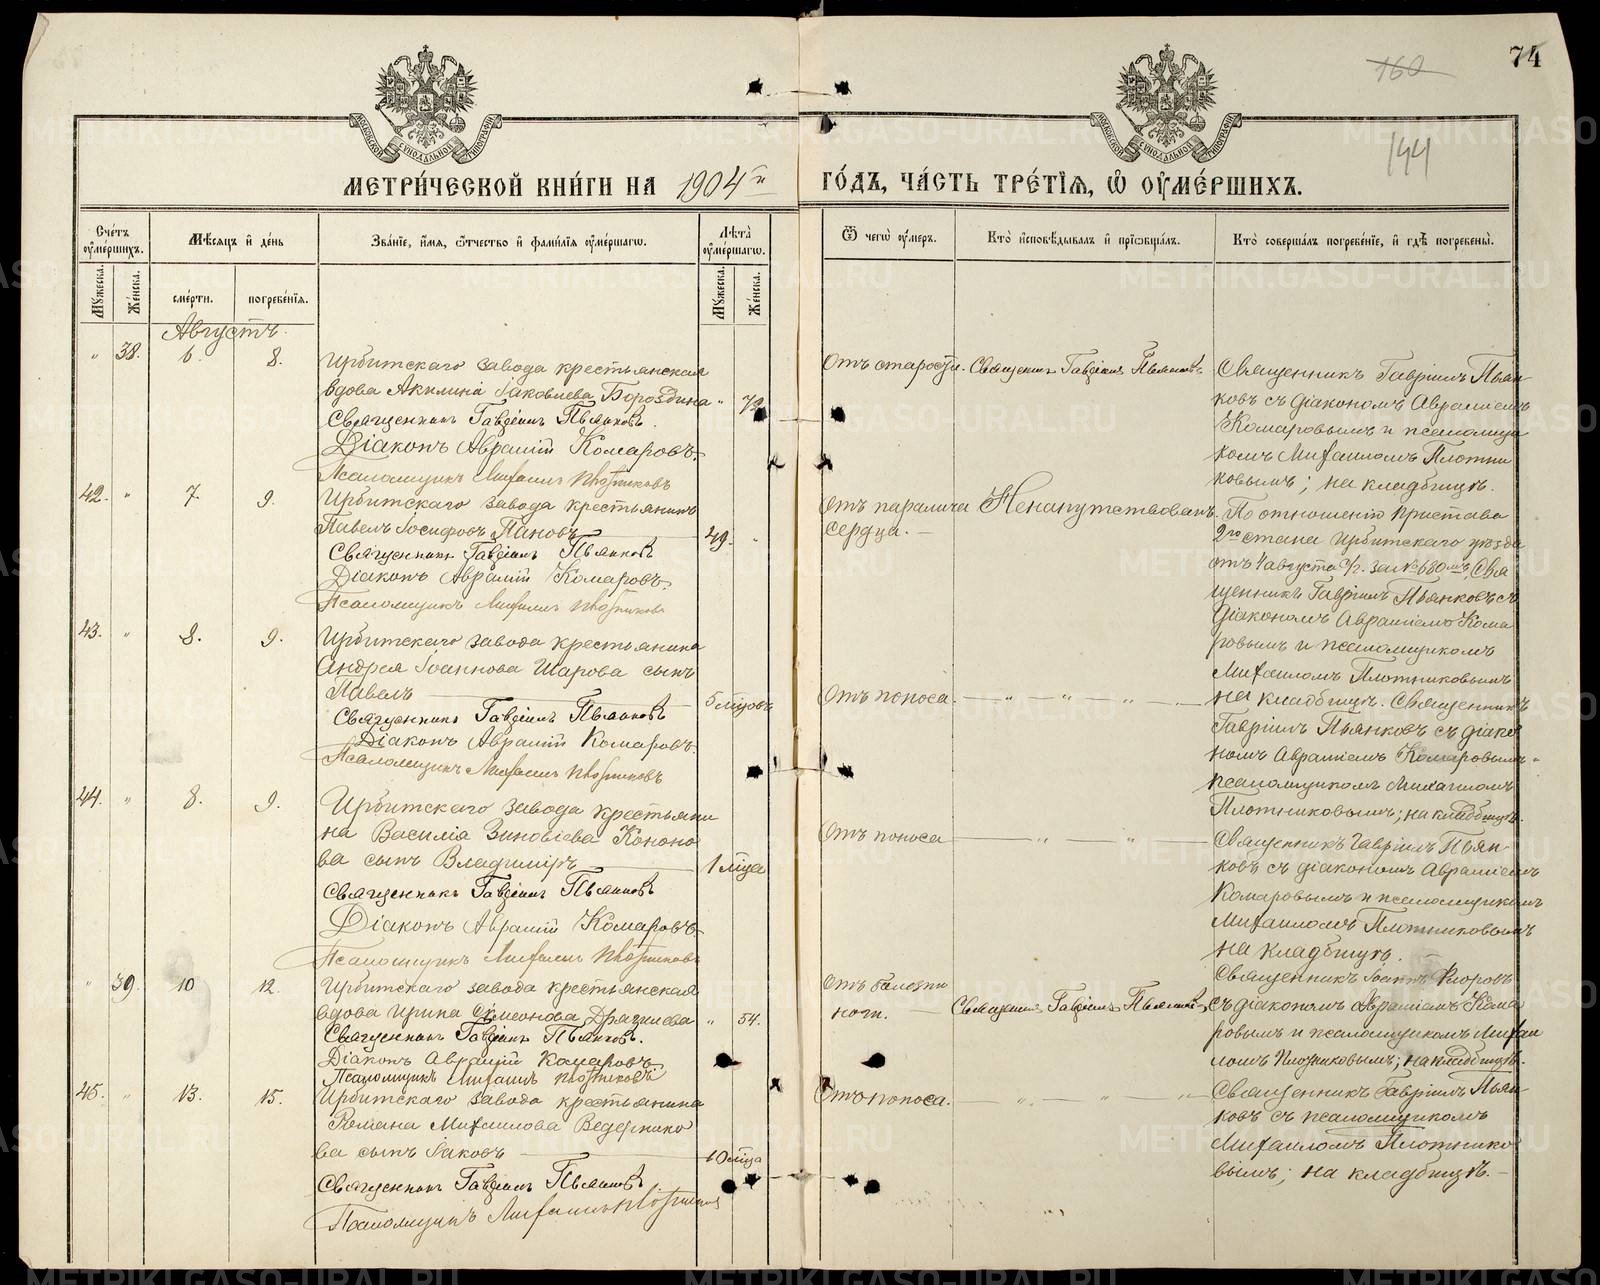 74
160
144
МЕТРИ́ЧЕСКОЙ КНИ́ГИ НА 1904й ГО́ДЪ, ЧА́СТЬ ТРЕ́ТІѦ, Ѡ҆ ОУМЕ́РШИХЪ.
Счетъ оумершихъ.
Мѣсяцъ и день
Зва́ніе, и҆́мя, ѻ҆́тчество и҆ фами́лія оуме́ршагѡ.
Лѣта оуме́ршагѡ.
Ѿ чегѡ̀ оу҆́меръ.
Кто̀ и҆сповѣ́дывалъ и҆ прїѡбща́лъ.
Кто̀ соверша́лъ погребе́ніе, и҆ гдѣ̀ погребены̀.
Мужеска.
Женска.
сме́рти.
погребе́нія.
Мужеска.
Женска.
Августъ.
" 38. 6. 8.
Ирбитскаго завода крестьянская
вдова Акилина Іаковлева Бороздина "
Священникъ Гавріилъ Пьянковъ.
Діаконъ Авраамій Комаровъ.
Псаломщикъ Михаилъ Плотниковъ
Отъ старости.
Священникъ Гавріилъ Пьянковъ
Священникъ Гавріилъ Пьян-
ковъ съ діакономъ Авраміемъ
Комаровымъ и псаломщи
комъ Михаиломъ Плотни
ковымъ; на кладбищѣ.
42. " 7. 9.
Ирбитскаго завода крестьянинъ
Павелъ Іосифовъ Пановъ 49. "
Священникъ Гавріилъ Пьянковъ
Діаконъ Аврамій Комаровъ.
Псаломщикъ Михаилъ Плотниковъ
Отъ паралича
сердца. —
Ненапутствованъ.
По отношенію Пристава
2го стана Ирбитскаго уѣзда
отъ августа с/г. за № 680мъ, Свя
щенникъ Гавріилъ Пьянковъ съ
діакономъ Авраміемъ Кома
ровымъ и псаломщикомъ
Михаиломъ Плотниковымъ
на кладбищѣ.
43. " 8. 9.
Ирбитскаго завода крестьянина
Андрея Іоаннова Шарова сынъ
Павелъ — 5 мцовъ
Священникъ Гавріилъ Пьянковъ
Діаконъ Аврамій Комаровъ.
Псаломщикъ Михаилъ Плотниковъ
Отъ поноса. — " — " — " —
Священникъ
Гавріилъ Пьянковъ съ діако
номъ Авраміемъ Комаровымъ и
псаломщикомъ Михаиломъ
Плотниковымъ; на кладбищѣ.
44. " 8. 9.
Ирбитскаго завода крестьяни
на Василія Зиновіева Кононо
ва сынъ Владиміръ — 1 мца
Священникъ Гавріилъ Пьянковъ
Діаконъ Аврамій Комаровъ
Псаломщикъ Михаилъ Плотниковъ
Отъ поноса — " — " —
Священникъ Гавріилъ Пьян-
ковъ съ діакономъ Авраміемъ
Комаровымъ и псаломщикомъ
Михаиломъ Плотниковымъ
на кладбищѣ.
" 39. 10 12.
Ирбитскаго завода крестьянская
вдова Ирина Симеонова " 54.
Священникъ Гавріилъ Пьянковъ.
Діаконъ Аврамій Комаровъ.
Псаломщикъ Михаилъ Плотниковъ
Отъ болезни
ноги. —
Священникъ Гавріилъ Пьянковъ
Священникъ Іоаннъ Флоровъ
съ діакономъ Авраміемъ Кома
ровымъ и псаломщикомъ Михаи
ломъ Плотниковымъ; на кладбищѣ.
45. " 13. 15.
Ирбитскаго завода крестьянина
Романа Михаилова Ведернико
ва сынъ Іаковъ — 10 мца
Священникъ Гавріилъ Пьянковъ.
Псаломщикъ Михаилъ Плотниковъ
Отъ поноса. — " — " — "
Священникъ Гавріилъ Пьян-
ковъ съ псаломщикомъ
Михаиломъ Плотнико
вымъ; на кладбищѣ. —
METRIKI.GASO-URAL.RU